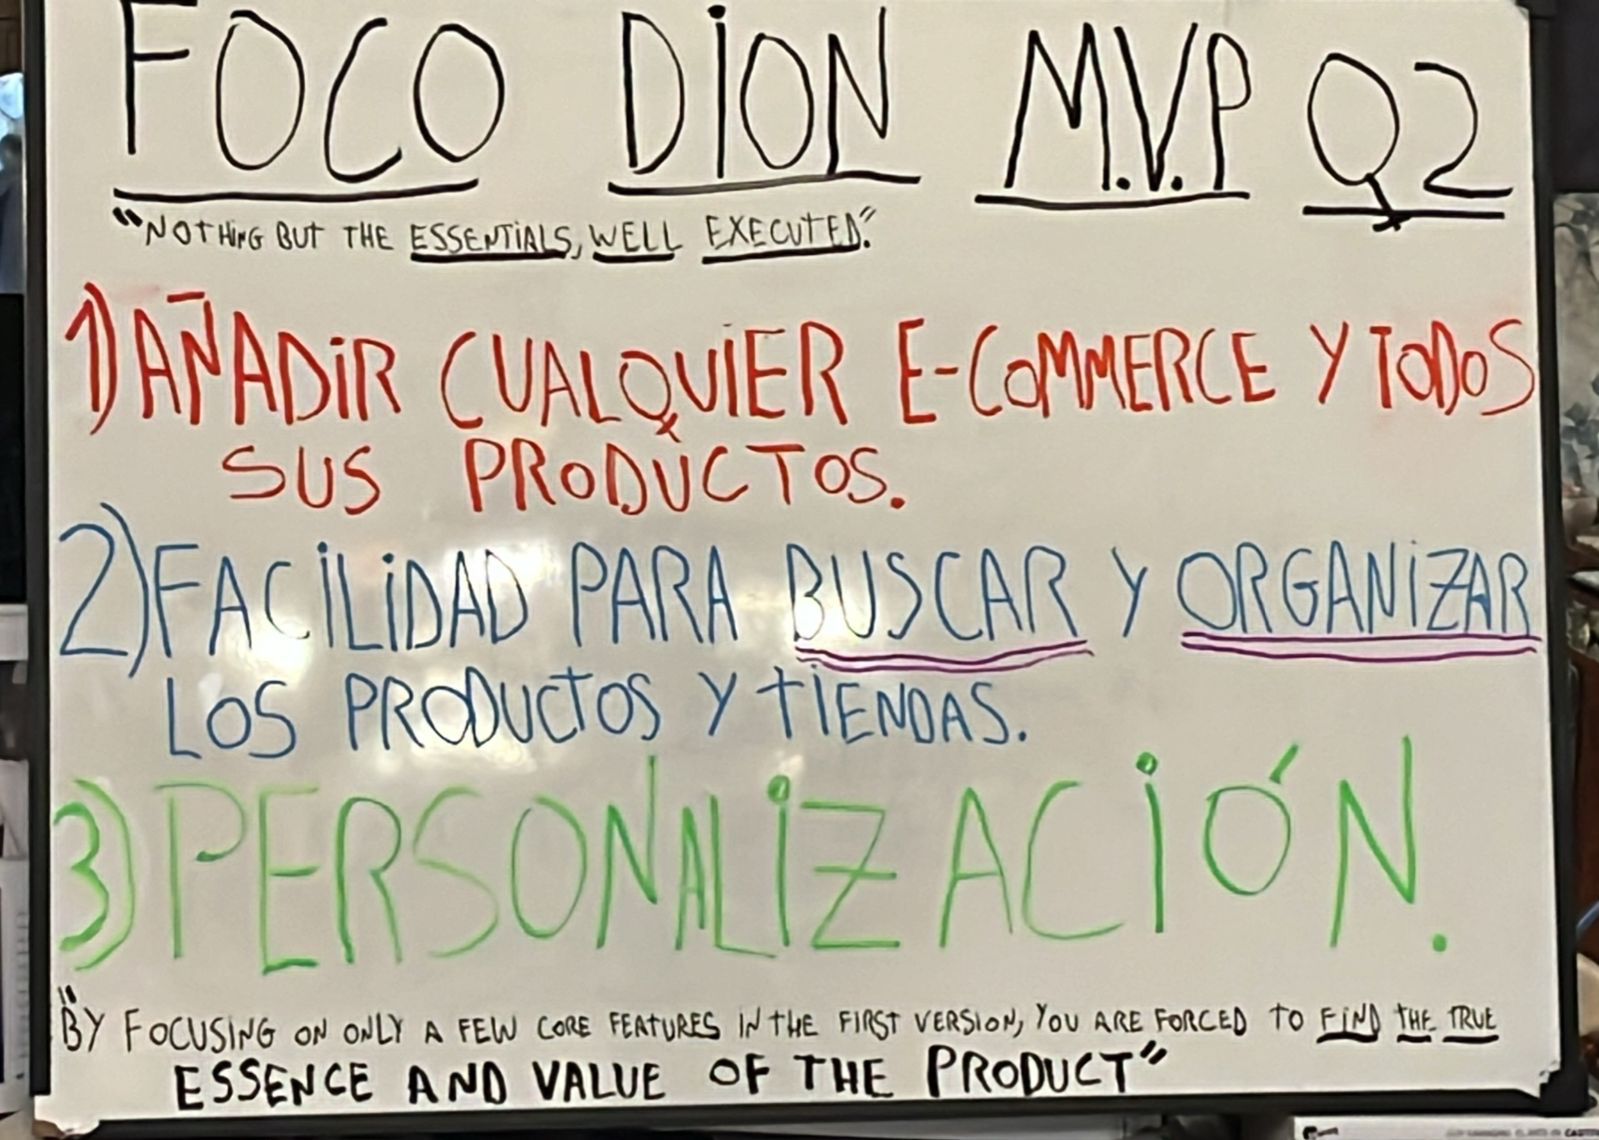 FOCO DION M.V.P Q2
"NOTHING BUT THE ESSENTIALS, WELL EXECUTED."
1) AÑADIR CUALQUIER E-COMMERCE Y TODOS
SUS PRODUCTOS.
2) FACILIDAD PARA BUSCAR Y ORGANIZAR
LOS PRODUCTOS Y TIENDAS.
3) PERSONALIZACIÓN.
"BY FOCUSING ON ONLY A FEW CORE FEATURES IN THE FIRST VERSION, YOU ARE FORCED TO FIND THE TRUE
ESSENCE AND VALUE OF THE PRODUCT"